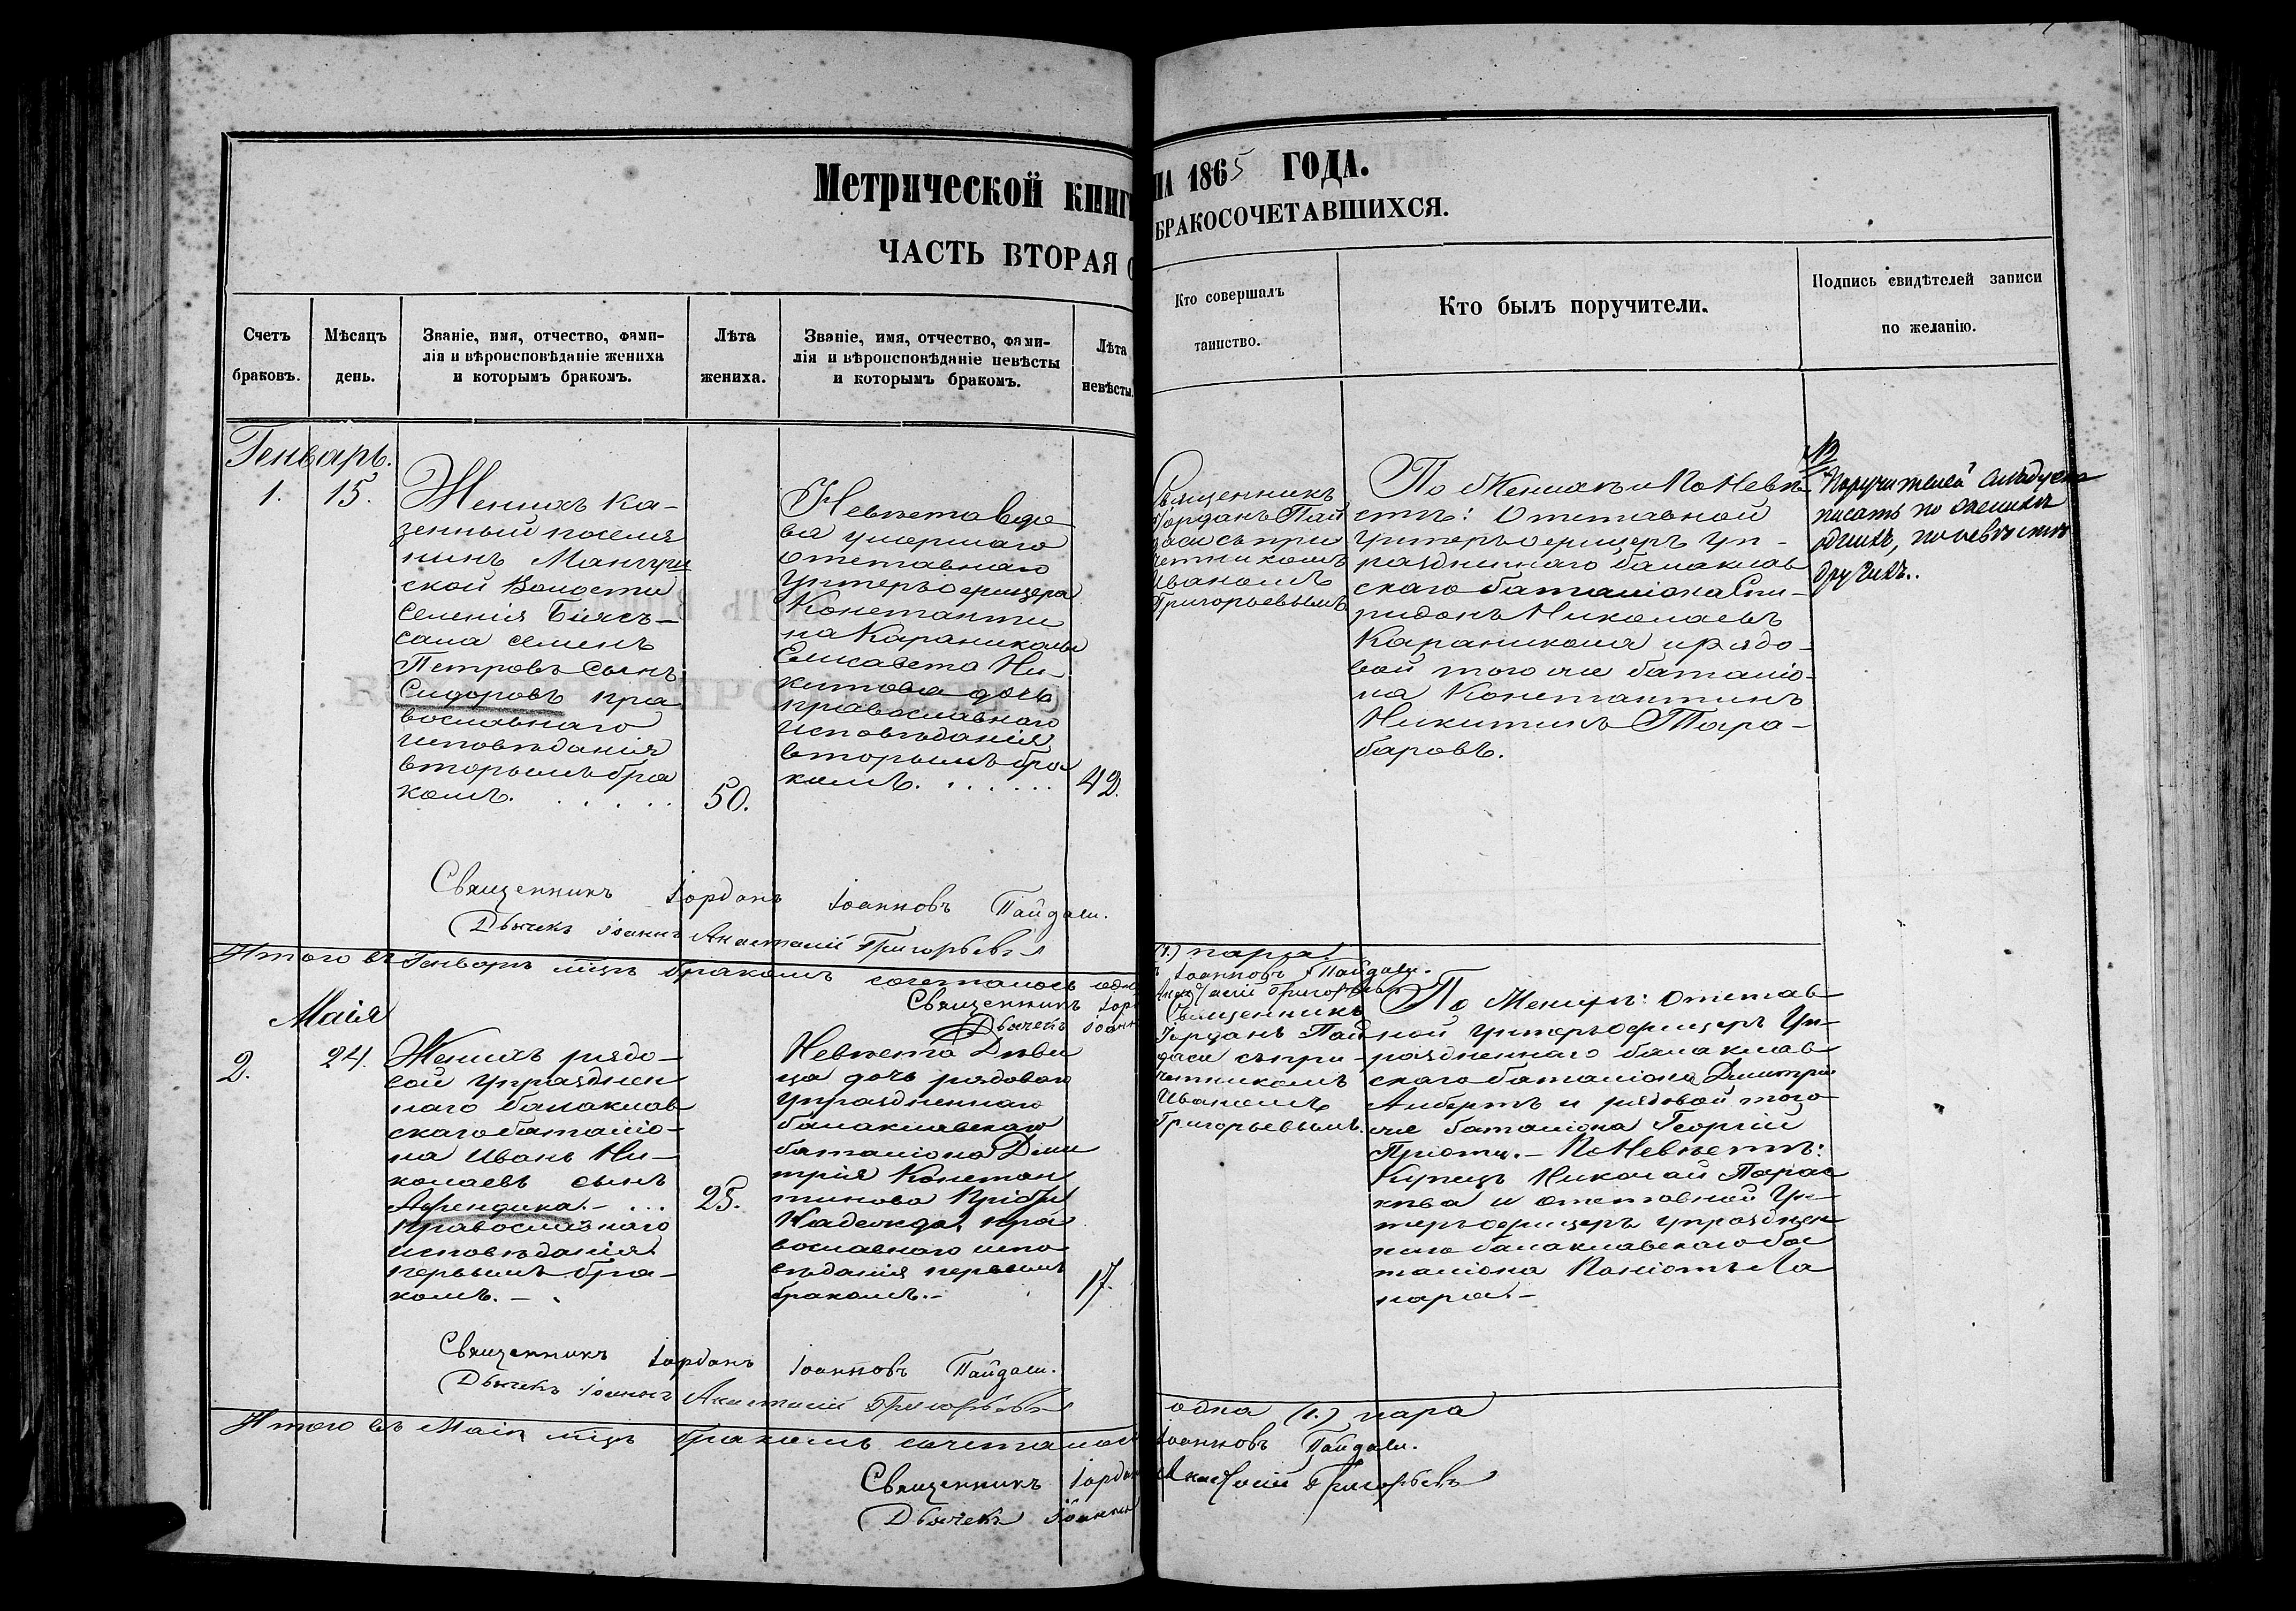 Метрической книги
НА 1865 ГОДА.
ЧАСТЬ ВТОРАЯ
БРАКОСОЧЕТАВШИХСЯ.
Счетъ
браковъ.
Мѣсяцъ
день.
Званіе, имя, отчество, фами-
лія и вѣроисповѣданіе жениха
и которымъ бракомъ.
Лѣта
жениха.
Званіе, имя, отчество, фами-
лія и вѣроисповѣданіе невѣсты
и которымъ бракомъ.
Лѣта
невѣсты.
Кто совершалъ
таинство.
Кто былъ поручители.
Подпись свидѣтелей записи
по желанію.
Генварь.
1.
15.
Женихъ ка-
зенный поселя
нинъ Мангуш
ской Волости
селенія Біясъ-
сала Семенъ
Петровъ сынъ
Сидоровъ пра
вославнаго
исповѣданія
вторымъ бра
комъ.
50.
Невѣста вдо
ва умершаго
отставнаго
Унтеръ офицера
Константи
на Караникола
Елисавета Ни
китова дочь
православнаго
исповѣданія
вторымъ бра
комъ.
42.
Священникъ
Іорданъ Пай
даси съ при
четникомъ
Иваномъ
Григорьевымъ
По Женихѣ и по Невѣ
стѣ: Отставной
Унтеръ офицеръ Уп-
раздненнаго балаклав
скаго баталіона Спи-
ридонъ Николаевъ
Караникола и рядо-
вой того же баталіо-
на Константинъ
Никитинъ Тара-
баровъ.
Поручителей слѣдуетъ
писать по женихѣ
однихъ, по невѣстѣ
другихъ.
Священникъ Іорданъ Іоанновъ Пайдаси.
Дьячекъ Іоаннъ Анастасій Григорьевъ
Итого въ Генварѣ мцѣ бракомъ сочеталось одна
(1.) пара.
Священникъ Іор
Іоанновъ Пайдаси.
Дьячекъ Іоанн
Анастасій Григорьевъ
Маія
2.
24.
Женихъ рядо-
вой Упразднен
наго балаклав
скаго баталіо-
на Иванъ Ни-
колаевъ сынъ
Афендика.
православнаго
исповѣданія
первымъ бра-
комъ.
25.
Невѣста Дѣви
ца дочь рядоваго
Упраздненнаго
балаклавскаго
баталіона Дми
трія Констан
тинова
Надежда, пра
вославнаго испо
вѣданія первымъ
бракомъ.
17.
Священникъ
Іорданъ Пай
даси съ при-
четникомъ
Иваномъ
Григорьевымъ.
По Женихѣ: Отстав
ной Унтеръ офицеръ Уп-
раздненнаго балаклав
скаго баталіона Дмитрій
и рядовой того
же баталіона Георгій
По Невѣстѣ:
Купецъ Николай Парас
кева и отставной Ун-
теръ офицеръ упразднен
наго балаклавскаго ба
таліона Паніотъ Ла
пара.
Священникъ Іорданъ Іоанновъ Пайдаси.
Дьячекъ Іоаннъ Анастасій Григорьевъ
Итого въ Маіи мцѣ бракомъ сочеталось
одна (1.) пара
Священникъ Іордан
Іоанновъ Пайдаси.
Дьячекъ Іоаннъ
Анастасій Григорьевъ